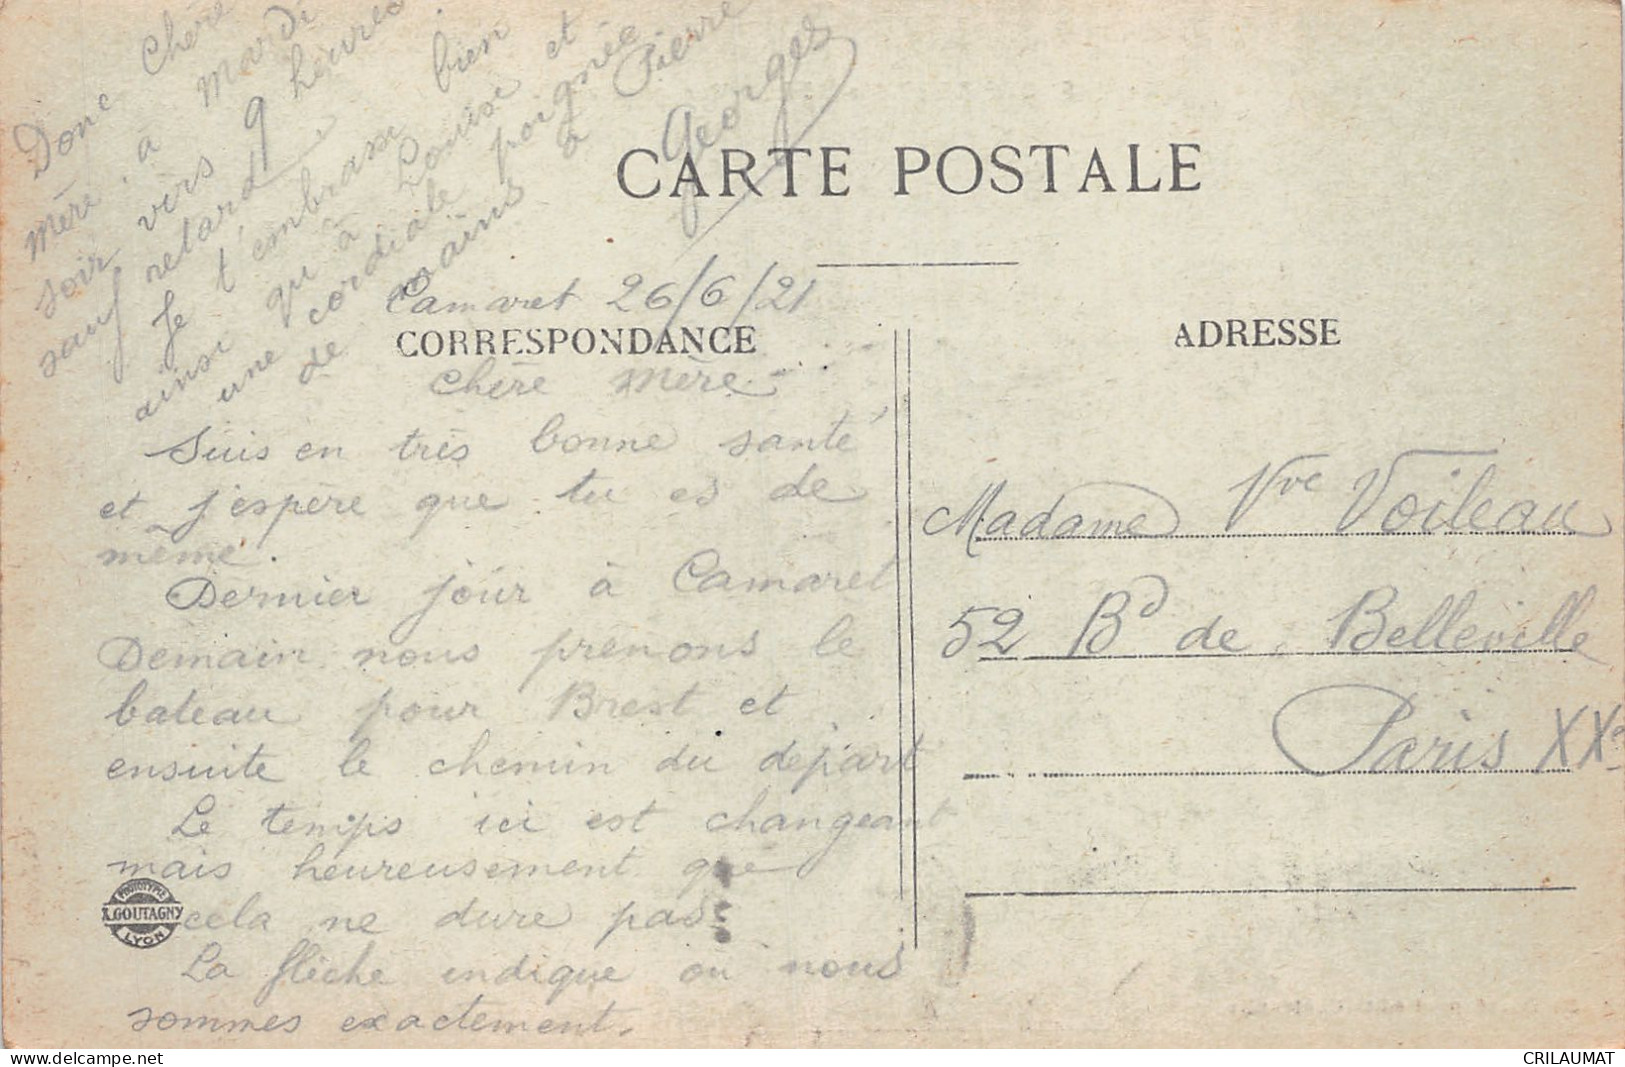 CARTE POSTALE
Camaret 26/6/21
CORRESPONDANCE
Chère Mère
Suis en très bonne santé
et j'espère que tu es de
même.
Dernier jour à Camaret
Demain nous prenons le
bateau pour Brest et
ensuite le chemin du départ
Le temps ici est changeant
mais heureusement que
cela ne dure pas
La flèche indique où nous
sommes exactement.
Donc Chère
Mère à Mardi
soir vers 9 heures
sauf retard
Je t'embrasse bien
ainsi qu'à Louise et
une cordiale poignée
de mains à Pierre
Georges
ADRESSE
Madame Vve Voileau
52 Bd de Belleville
Paris XXe
PHOTOTYPIE
A. GOUTAGNY
LYON
delcampe.net
CRILAUMAT